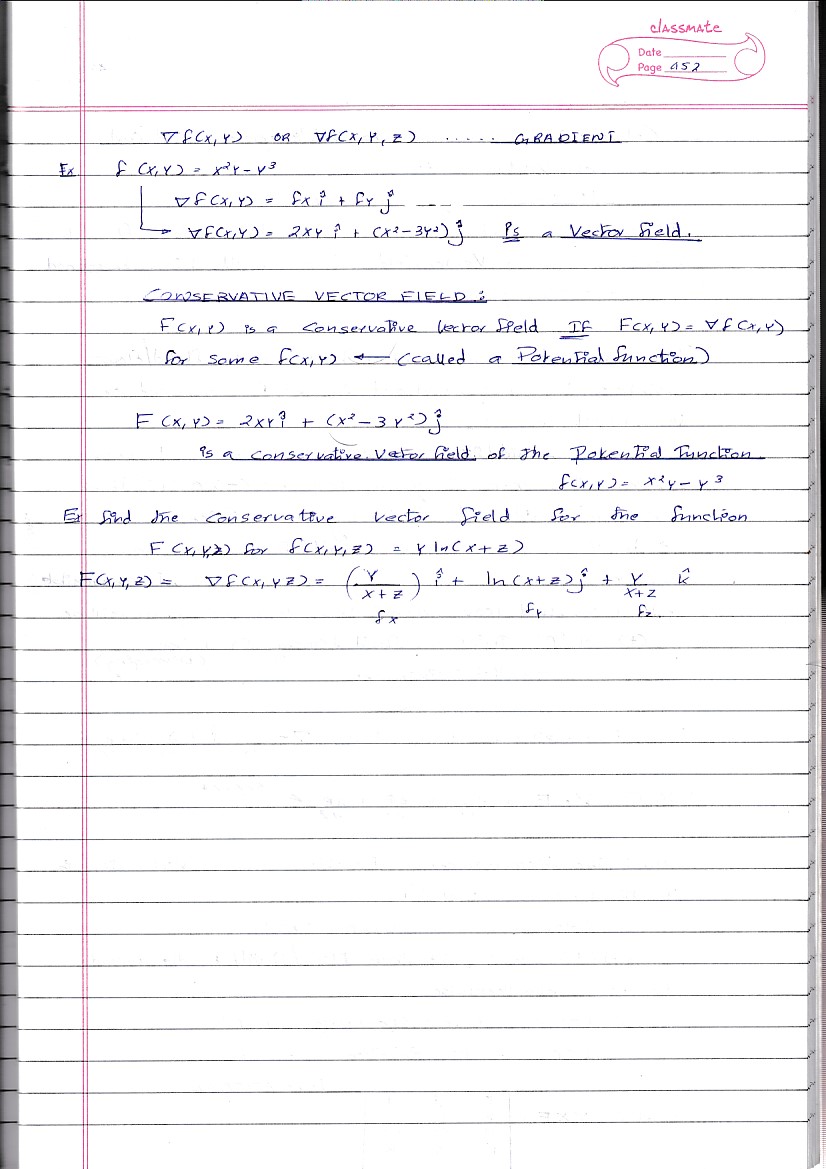 classmate
Date
Page 152
∇f(x,y) OR ∇f(x,y,z) ..... GRADIENT
Ex f(x,y) = x²y - y³
∇f(x,y) = fx î + fy ĵ ---
∇f(x,y) = 2xy î + (x²-3y²) ĵ is a Vector field.
CONSERVATIVE VECTOR FIELD:
F(x,y) is a conservative vector field IF F(x,y) = ∇f(x,y)
for some f(x,y) ← (called a Potential function)
F(x,y) = 2xy î + (x² - 3y²) ĵ
is a conservative vector field of the Potential Function
f(x,y) = x²y - y³
Ex find the conservative vector field for the function
F(x,y,z) for f(x,y,z) = y ln(x+z)
F(x,y,z) = ∇f(x,yz) = (y/x+z) î + ln(x+z) ĵ + y/x+z k̂
fx fy fz